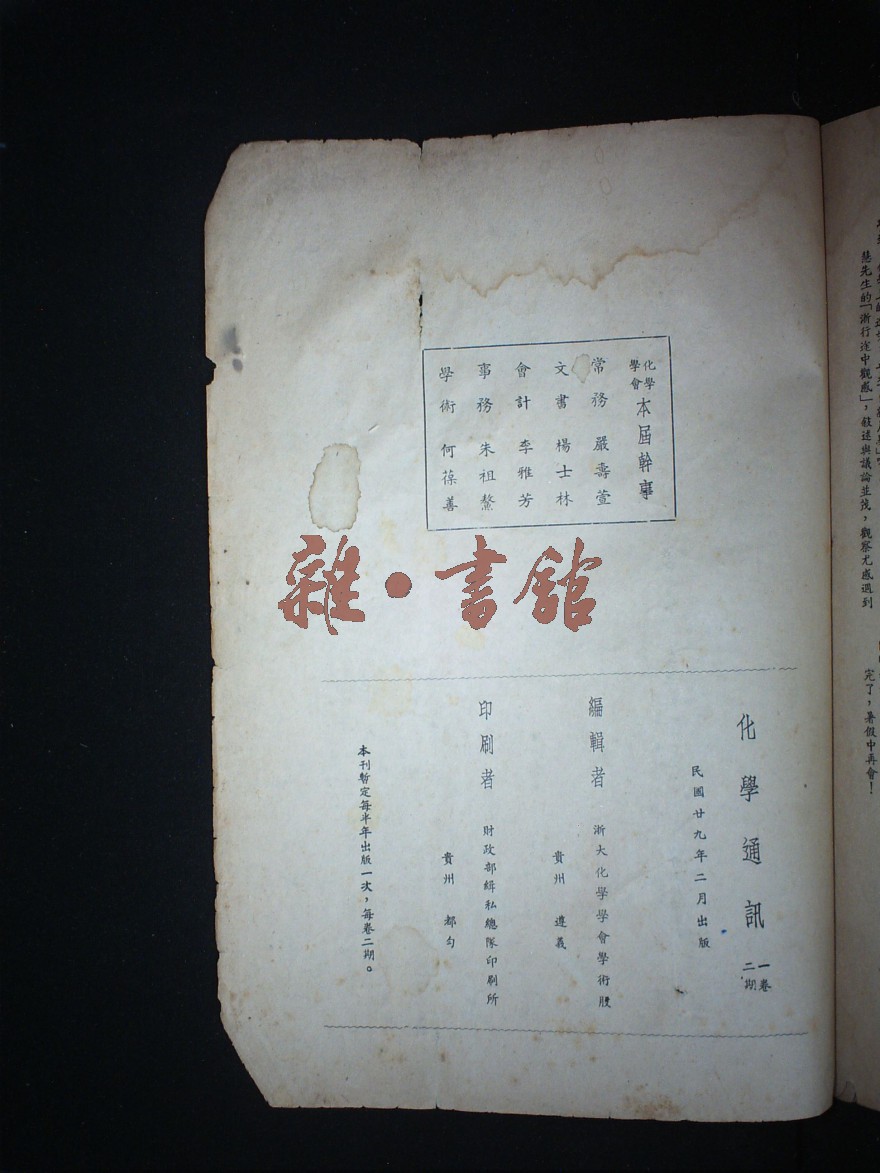 慧先生的「浙行途中觀感」，敍述與議論並茂，觀察尤感週到
完了，暑假中再會！
化學
學會
本屆幹事
常務 嚴壽萱
文書 楊士林
會計 李雅芳
事務 朱祖鰲
學術 何葆善
雜·書館
化學通訊
一卷
二期
民國廿九年二月出版
編輯者 浙大化學學會學術股
貴州 遵義
印刷者 財政部緝私總隊印刷所
貴州 都勻
本刊暫定每半年出版一次，每卷二期。